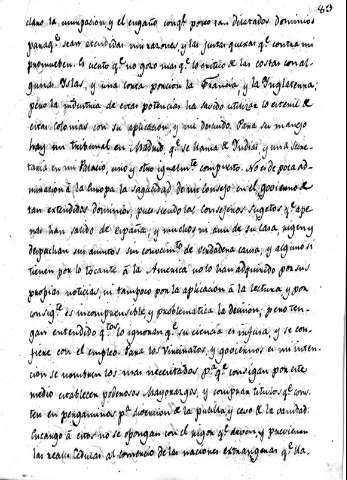 83
clamo, la usurpacion, y el engaño congᵉ poseo tan dilatados dominios
paraqᵉ sean atendidas mis razones, y las justas quexas qᵉ contra mi
promueben. Es cierto qᵉ no gozo mas qᵉ lo critico de las costas con al-
gunas Islas, y una corta porcion la Francia, y la Inglaterra;
pero la industria de estas potencias ha sabido utilizar lo esteril de
estas colonias con su aplicacion, y mi descuido. Para su manejo
hay un tribunal en Madrid, qᵉ se llama de Indias, y una Secre-
taria en mi Palacio, uno y otro igualmᵗᵉ compuesto. No es de poca ad-
miracion à la Europa la sagacidad de mi consejo en el govierno de
tan extendidos dominios, pues siendo los consejeros sugetos qᵉ ape-
nas han salido de España, y muchos ni aun de su casa, rigen y
despachan sus asuntos sin conocimᵗᵒ de verdadera causa, y alguno si
tienen por lo tocante à la America no lo han adquirido por sus
propias noticias, ni tampoco por la aplicacion à la lectura, y por
consigᵗᵉ es incomprensible y problematica la decision; pero ten-
gan entendido qᵗᵒˢ lo ignoran qᵉ su ciencia es infusa, y se con-
fiere con el empleo. Para los Virreinatos, y goviernos es mi inten-
cion se nombren los mas necesitados pᵃ qᵉ consigan por este
medio establecer poderosos Mayorazgos, y compran titulos qᵉ cons-
ten en pergaminos pᵃ distincion de la puebla, y caso de la vanidad:
Encargo à estos no se opongan con el rigor qᵉ deven, y previenen
las reales Cedulas al comercio de las naciones extrangeras qᵉ lla-